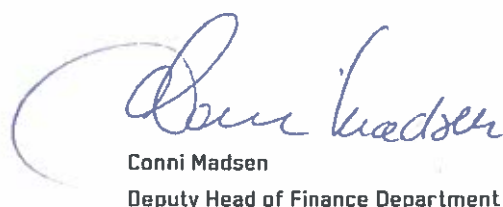 Conni Madsen
Conni Madsen
Deputy Head of Finance Department